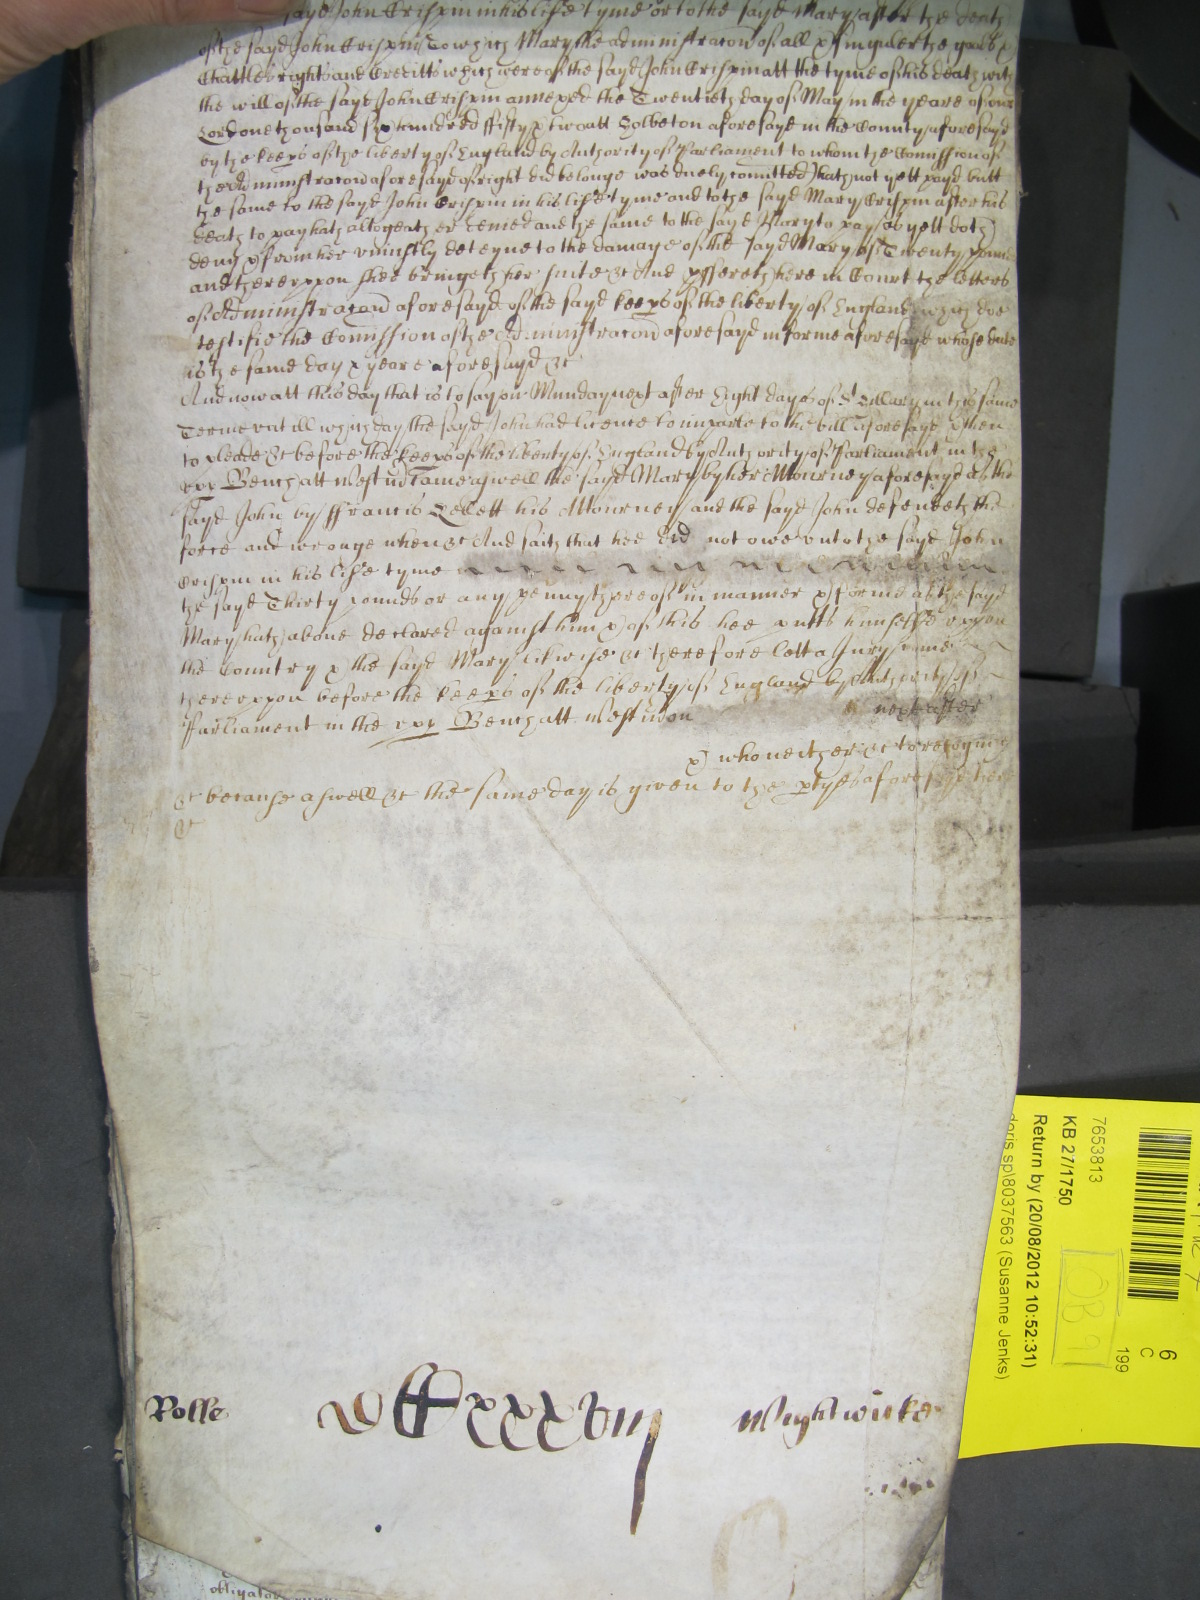 sayd John Crispin in his life tyme or to the sayd Mary after the death
of the sayd John Crispin To which Mary the administracon of all & singuler the goods &
Chattles rights and Creditts which were of the sayd John Crispin att the tyme of his death with
the will of the sayd John Crispin annexed the Twentieth day of May in the yeare of our
Lord one thousand six hundred ffifty & two att Holbeton aforesayd in the County aforesayd
by the keeps of the liberty of England by Authority of Parliament to whom the Comission of
the Administracon aforesayd of right did belonge was duely comitted hath not yett payd butt
the same to the sayd John Crispin in his life tyme and to the sayd Mary Crispin after his
death to pay hath altogeather denied and the same to the sayd Mary to pay as yett doth
deny & from her uniustly deteyne to the damage of the sayd Mary of Twenty pounds
and thereuppon shee bringeth her suite &c And pffereth here in Court the letters
of Administracon aforesayd of the sayd keeps of the liberty of England which doe
testifie the Comission of the Administracon aforesayd in forme aforesayd whose date
is the same day & yeare aforesayd &c
And now att this day that is to say on Munday next after Eight dayes of St Hillary in this same
Terme untill which day the sayd John had licence to imparle to the bill aforesayd & then
to pleade &c before the keeps of the liberty of England by Authority of Parliament in the
upp Bench att Westm Came aswell the sayd Mary by her Attourney aforesayd as the
sayd John by ffrancis Hellett his Attourney and the sayd John defendeth the
force and wronge when &c And saith that hee did not owe unto the sayd John
Crispin in his life tyme
the sayd Thirty pounds or any penny thereof in manner & forme as the sayd
Mary hath above declared against him & of this hee putts himselfe uppon
the Country & the sayd Mary likewise &c therefore lett a Jury come
thereuppon before the keeps of the liberty of England by Authority of
Parliament in the upp Bench att Westm on next after
& who neither &c to recognize
&c because aswell &c the same day is given to the ptyes aforesayd there
&c
Rolle xxxviij Wightwicke
7653813
KB 27/1750
Return by (20/08/2012 10:52:31)
doris.sp\8037563 (Susanne Jenks)
6
C
199